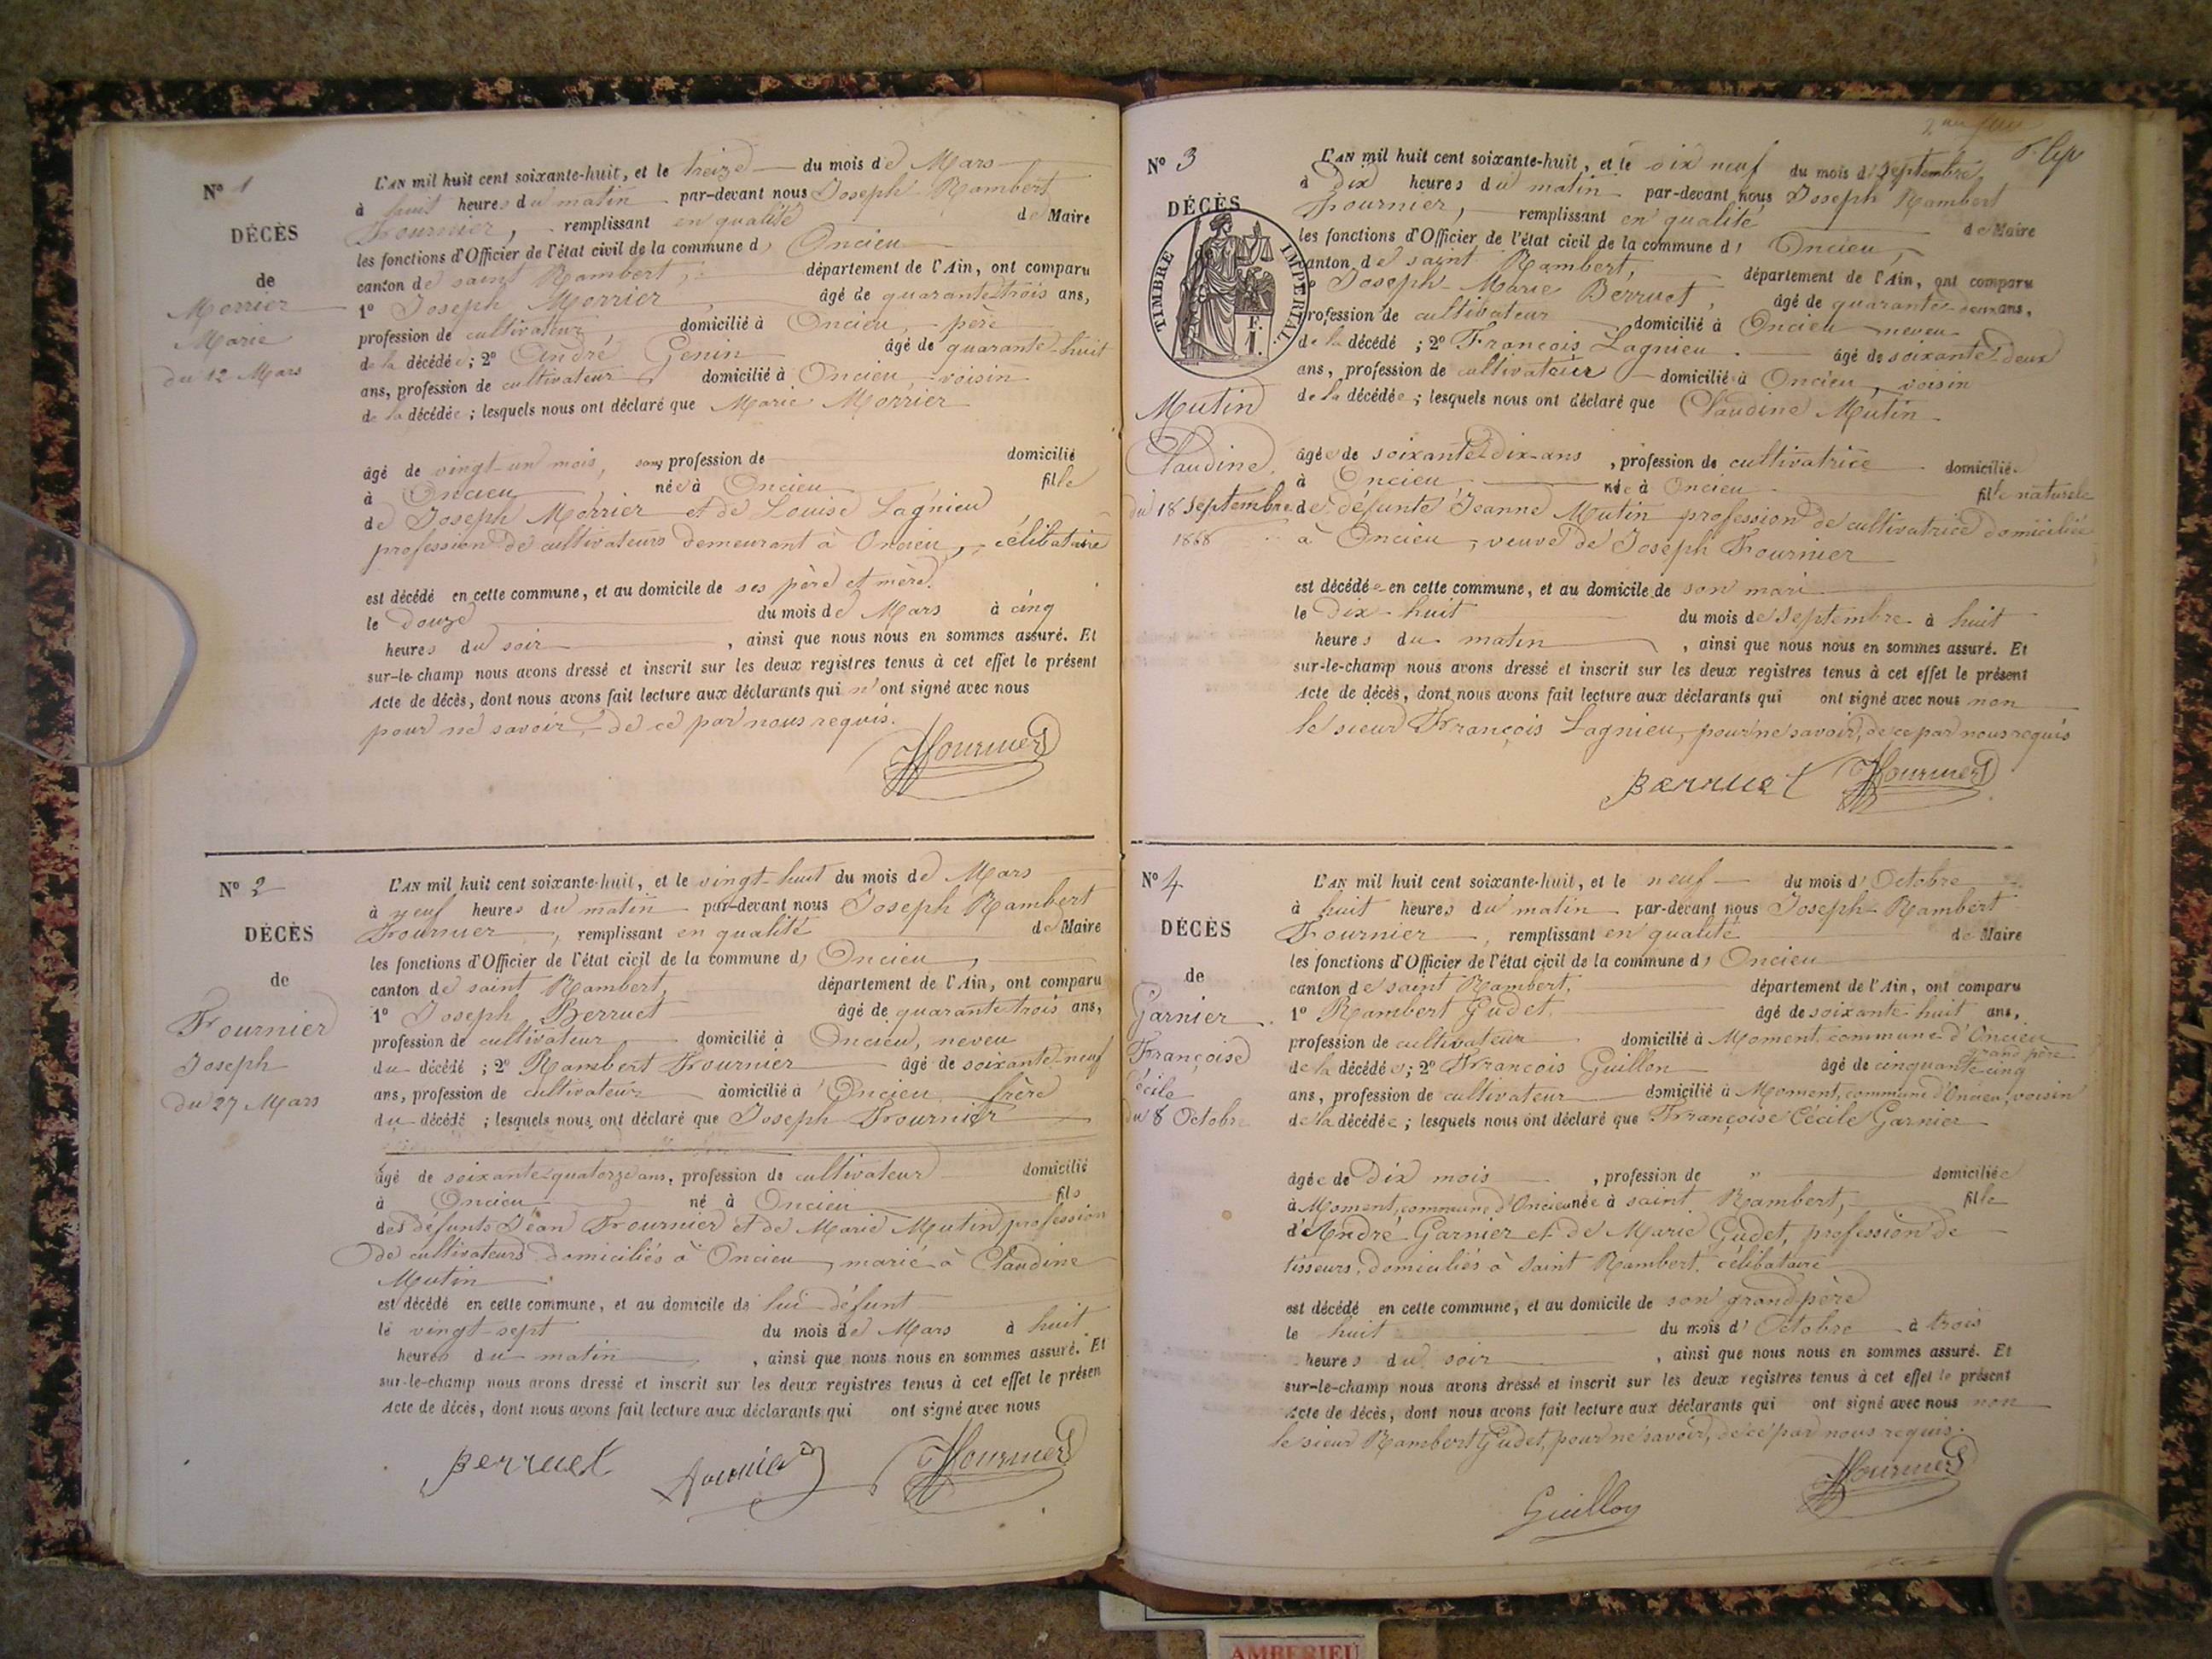 N° 1
DÉCÈS
de
Morrier
Marie
du 12 Mars
L'AN mil huit cent soixante-huit, et le treize du mois de Mars
à huit heures du matin par-devant nous Joseph Rambert
Fournier, remplissant en qualité de Maire
les fonctions d'Officier de l'état civil de la commune d' Oncieu
canton de saint Rambert, département de l'Ain, ont comparu
1° Joseph Morrier, âgé de quarante-trois ans,
profession de cultivateur, domicilié à Oncieu, père
de la décédée; 2° André Genin âgé de quarante-huit
ans, profession de cultivateur, domicilié à Oncieu, voisin
de la décédée; lesquels nous ont déclaré que Marie Morrier
âgé de vingt-un mois, sans profession de domicilié
à Oncieu née à Oncieu fille
de Joseph Morrier et de Louise Lagnieu
profession de cultivateurs demeurant à Oncieu, célibataire
est décédé en cette commune, et au domicile de ses père et mère.
le douze du mois de Mars à cinq
heures du soir, ainsi que nous nous en sommes assuré. Et
sur-le-champ nous avons dressé et inscrit sur les deux registres tenus à cet effet le présent
Acte de décès, dont nous avons fait lecture aux déclarants qui n'ont signé avec nous
pour ne savoir, de ce par nous requis.
JFournier
N° 2
DÉCÈS
de
Fournier
Joseph
du 27 Mars
L'AN mil huit cent soixante-huit, et le vingt-huit du mois de Mars
à neuf heures du matin par-devant nous Joseph Rambert
Fournier, remplissant en qualité de Maire
les fonctions d'Officier de l'état civil de la commune d' Oncieu,
canton de saint Rambert, département de l'Ain, ont comparu
1° Joseph Berruet âgé de quarante-trois ans,
profession de cultivateur domicilié à Oncieu, neveu
du décédé; 2° Rambert Fournier âgé de soixante-neuf
ans, profession de cultivateur domicilié à Oncieu frère
du décédé; lesquels nous ont déclaré que Joseph Fournier
âgé de soixante-quatorze ans, profession de cultivateur domicilié
à Oncieu né à Oncieu fils
des défunts Jean Fournier et de Marie Mutin profession
de cultivateurs domiciliés à Oncieu, marié à Claudine
Mutin
est décédé en cette commune, et au domicile de lui défunt
le vingt-sept du mois de Mars à huit
heures du matin, ainsi que nous nous en sommes assuré. Et
sur-le-champ nous avons dressé et inscrit sur les deux registres tenus à cet effet le présen
Acte de décès, dont nous avons fait lecture aux déclarants qui ont signé avec nous
Berruet Fournier JFournier
N° 3
DÉCÈS
TIMBRE IMPÉRIAL
F.
1.
Mutin
Claudine
du 18 Septembre
1868
L'AN mil huit cent soixante-huit, et le dix neuf du mois de Septembre,
à dix heures du matin par-devant nous Joseph Rambert
Fournier, remplissant en qualité de Maire
les fonctions d'Officier de l'état civil de la commune d' Oncieu,
canton de saint Rambert, département de l'Ain, ont comparu
Joseph-Marie Berruet, âgé de quarante-deux ans,
profession de cultivateur domicilié à Oncieu neveu
de la décédé; 2° François Lagnieu âgé de soixante-deux
ans, profession de cultivateur domicilié à Oncieu, voisin
de la décédée; lesquels nous ont déclaré que Claudine Mutin
âgée de soixante-dix ans, profession de cultivatrice domicilié
à Oncieu née à Oncieu fille naturelle
de défunte Jeanne Mutin profession de cultivatrice domiciliée
à Oncieu, veuve de Joseph Fournier
est décédée en cette commune, et au domicile de son mari
le dix-huit du mois de septembre à huit
heures du matin, ainsi que nous nous en sommes assuré. Et
sur-le-champ nous avons dressé et inscrit sur les deux registres tenus à cet effet le présent
Acte de décès, dont nous avons fait lecture aux déclarants qui ont signé avec nous non
le sieur François Lagnieu, pour ne savoir, de ce par nous requis
Berruet JFournier
N° 4
DÉCÈS
de
Garnier
Françoise
Cécile
du 8 Octobre
L'AN mil huit cent soixante-huit, et le neuf du mois d' Octobre
à huit heures du matin par-devant nous Joseph-Rambert
Fournier, remplissant en qualité de Maire
les fonctions d'Officier de l'état civil de la commune d' Oncieu
canton de saint Rambert, département de l'Ain, ont comparu
1° Rambert Gudet, âgé de soixante huit ans,
profession de cultivateur domicilié à Moment, commune d'Oncieu
grand père
de la décédée; 2° François Guillon âgé de cinquante-cinq
ans, profession de cultivateur domicilié à Moment, commune d'Oncieu, voisin
de la décédée; lesquels nous ont déclaré que Françoise Cécile Garnier
âgée de Dix mois, profession de " domiciliée
à Moment, commune d'Oncieu née à saint Rambert, fille
d'André Garnier et de Marie Gudet, profession de
tisseurs, domiciliés à Saint Rambert. célibataire
est décédé en cette commune, et au domicile de son grand père
le huit du mois d' Octobre à trois
heures du soir, ainsi que nous nous en sommes assuré. Et
sur-le-champ nous avons dressé et inscrit sur les deux registres tenus à cet effet le présent
Acte de décès, dont nous avons fait lecture aux déclarants qui ont signé avec nous non
le sieur Rambert Gudet, pour ne savoir, de ce par nous requis.
Guillon JFournier
AMBERIEU